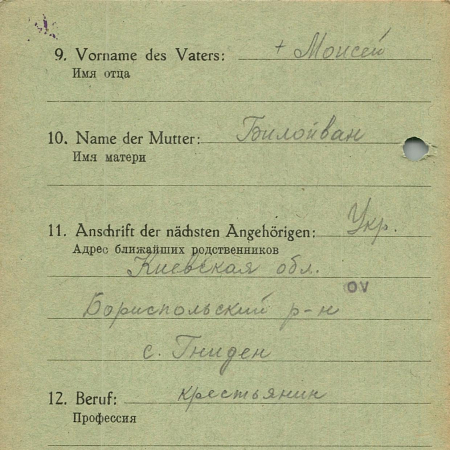 9. Vorname des Vaters: + Моисей
Имя отца
10. Name der Mutter: Билойван
Имя матери
11. Anschrift der nächsten Angehörigen: Укр.
Адрес ближайших родственников
Киевская обл.
OV
Бориспольский р-н
с. Гниден
12. Beruf: крестьянин
Профессия